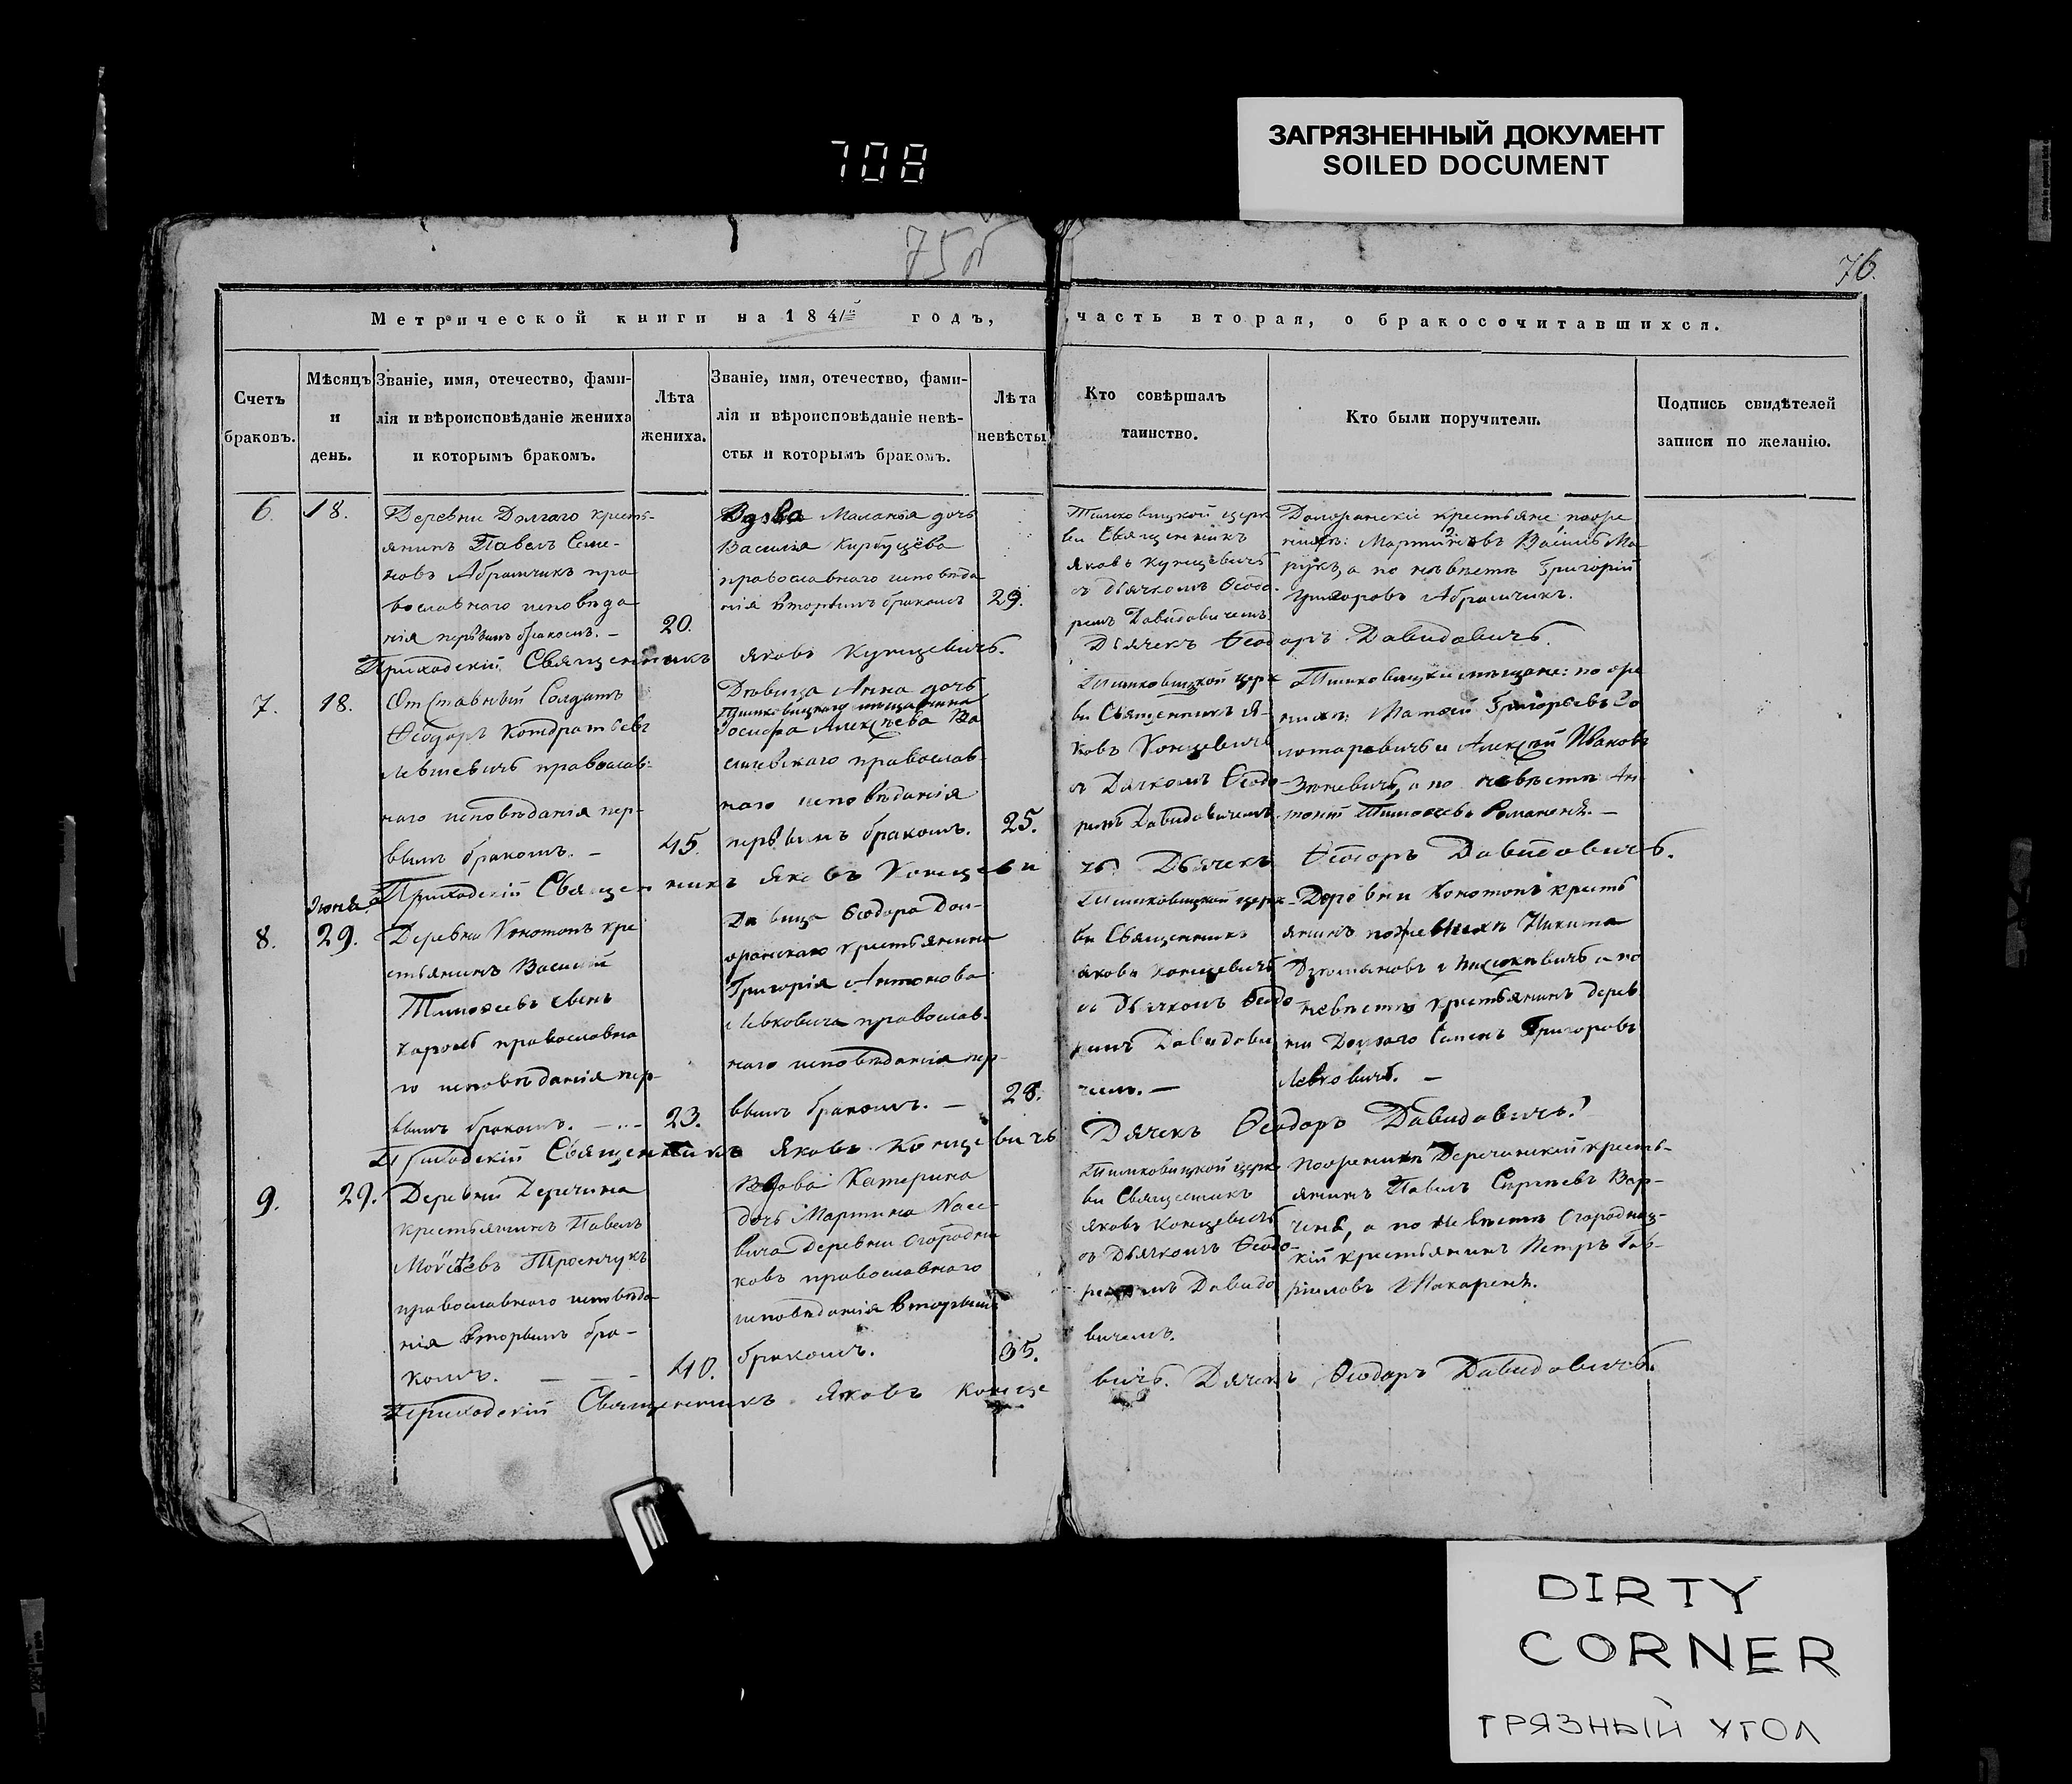 ЗАГРЯЗНЕННЫЙ ДОКУМЕНТ
SOILED DOCUMENT
708
75об
76.
Метрической книги на 1841й годъ, часть вторая, о бракосочитавшихся.
Счетъ браковъ.
Мѣсяцъ и день.
Званіе, имя, отечество, фами-
лія и вѣроисповѣданіе жениха
и которымъ бракомъ.
Лѣта
жениха.
Званіе, имя, отечество, фами-
лія и вѣроисповѣданіе невѣ-
сты и которымъ бракомъ.
Лѣта
невѣсты
Кто совѣршалъ
таинство.
Кто были поручители.
Подпись свидѣтелей
записи по желанію.
6.
18.
Деревни Долгаго кресть-
янинъ Павелъ Семе-
новъ Абрамчикъ пра
вославнаго исповѣда
нія первымъ бракомъ. –
20.
Вдова Маланья дочь
Василія
православнаго исповѣда
нія вторымъ бракомъ
29.
Тимковицкой церк
ви Священникъ
Яковъ Концевичъ
съ дьячкомъ Ѳеодо-
ромъ Давидовичемъ
крестьяне, поже
нихѣ: Василь Ма
рукъ, а по невѣстѣ Григорій
Григоровъ Абрамчикъ.
Приходскій Священникъ Яковъ Концевичъ.
Дьячекъ Ѳеодоръ Давидовичъ.
7.
18.
Отставный Солдатъ
Ѳеодоръ Кондратьевъ
Левшевичъ православ-
наго исповѣданія пер-
вымъ бракомъ. –
45.
Дѣвица Анна дочь
Тимковицкаго мѣщанина
Іосифа Алексѣева Ва
силевскаго православ-
наго исповѣданія
первымъ бракомъ.
25.
Тимковицкой церк
ви Священникъ Я-
ковъ Концевичъ
съ Дячкомъ Ѳеодо-
ромъ Давидовичемъ.
Тимковицкіе мѣщане: по же
нихѣ: Матвей Григорьевъ Зо
лотаревичъ и Алексѣй Ивановъ
а по невѣстѣ Ан
тоній Тимоѳеевъ Романеня. –
Приходскій Священникъ Яковъ Концеви
чъ Дьячекъ Ѳеодоръ Давидовичъ.
Іюня
8.
29.
Деревни Конотопъ кре
стьянинъ Василій
Тимоѳеевъ
православна
го исповѣданія пер-
вымъ бракомъ. –
23.
Дѣвица Ѳеодора Дол-
крестьянина
Григорія Антонова
Левковича православ-
наго исповѣданія пер-
вымъ бракомъ. –
28.
Тимковицкой церк-
ви Священникъ
Яковъ Концевичъ
съ Дьячкомъ Ѳеодо
ромъ Давидови
чемъ. –
Деревни Конотопъ кресть
янинъ по женихѣ Никита
а по
невѣстѣ крестьянинъ дерев
ни Долгаго Семенъ Григоровъ
Левковичъ. –
Приходскій Священникъ Яковъ Концевичъ
Дячекъ Ѳеодоръ Давидовичъ.
9.
29.
Деревни Деречина
крестьянинъ Павелъ
Моисеевъ Троенчукъ
православнаго исповѣда
нія вторымъ бра-
комъ. – – –
40.
Вдова Катерина
дочь Мартина
деревни Огородни
ковъ православнаго
исповѣданія вторымъ
бракомъ.
35.
Тимковицкой церк
ви Священникъ
Яковъ Концевичъ
съ Дьячкомъ Ѳеодо-
ромъ Давидо
вичемъ.
По женихѣ Деречинскій кресть-
янинъ Павелъ Сергѣевъ Вар-
ченя, а по невѣстѣ Огородниц-
кій крестьянинъ Петръ Гав-
риловъ Макареня.
Приходскій Священникъ Яковъ Конце
вичъ. Дячекъ Ѳеодоръ Давидовичъ.
DIRTY
CORNER
ГРЯЗНЫЙ УГОЛ